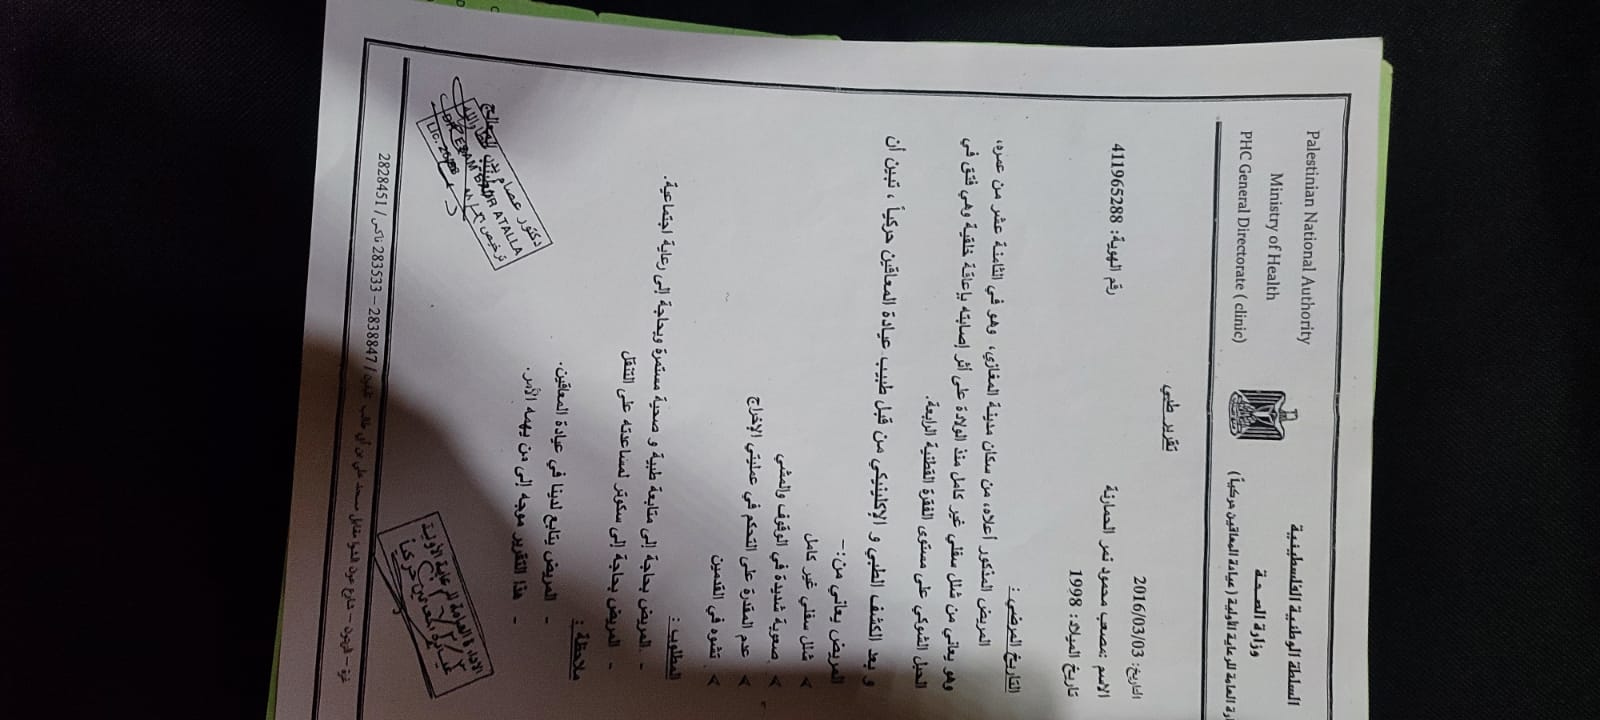 Palestinian National Authority
Ministry of Health
PHC General Directorate ( clinic)
السلطة الوطنية الفلسطينية
وزارة الصحة
ارة العامة للرعاية الأولية (عيادة المعاقين حركياً)
تقرير طبي
التاريخ: 2016/03/03
الاسم :مصعب محمود نمر الحمارنة
رقم الهوية: 411965288
تاريخ الميلاد: 1998
التاريخ المرضي :
المريض المذكور أعلاه، من سكان مدينة المغازي، وهو في الثامنة عشر من عمره،
وهو يعاني من شلل سفلي غير كامل منذ الولادة على أثر إصابته بإعاقة خلقية وهي فتق في
الحبل الشوكي على مستوى الفقرة القطنية الرابعة.
و بعد الكشف الطبي و الإكلينيكي من قبل طبيب عيادة المعاقين حركياً ، تبين أن
المريض يعاني من:-
شلل سفلي غير كامل
صعوبة شديدة في الوقوف والمشي
عدم المقدرة على التحكم في عمليتي الإخراج
تشوه في القدمين
المطلوب :
- المريض بحاجة إلى متابعة طبية و صحية مستمرة وبحاجة إلى رعاية اجتماعية.
- المريض بحاجة إلى سكوتر لمساعدته على التنقل
ملاحظة :
- المريض يتابع لدينا في عيادة المعاقين.
- هذا التقرير موجه إلى من يهمه الأمر.
الطبيب المعالج
دكتور عصام بدر
DR ESAM BADR ATALLA
ترخيص
Lic.
الادارة العامة للرعاية الأولية
عيادة المعاقين حركياً
غزة – العيون – شارع عون الشوا مقابل مسجد علي بن أبي طالب / 2838847 – 283533 فاكس / 2828451